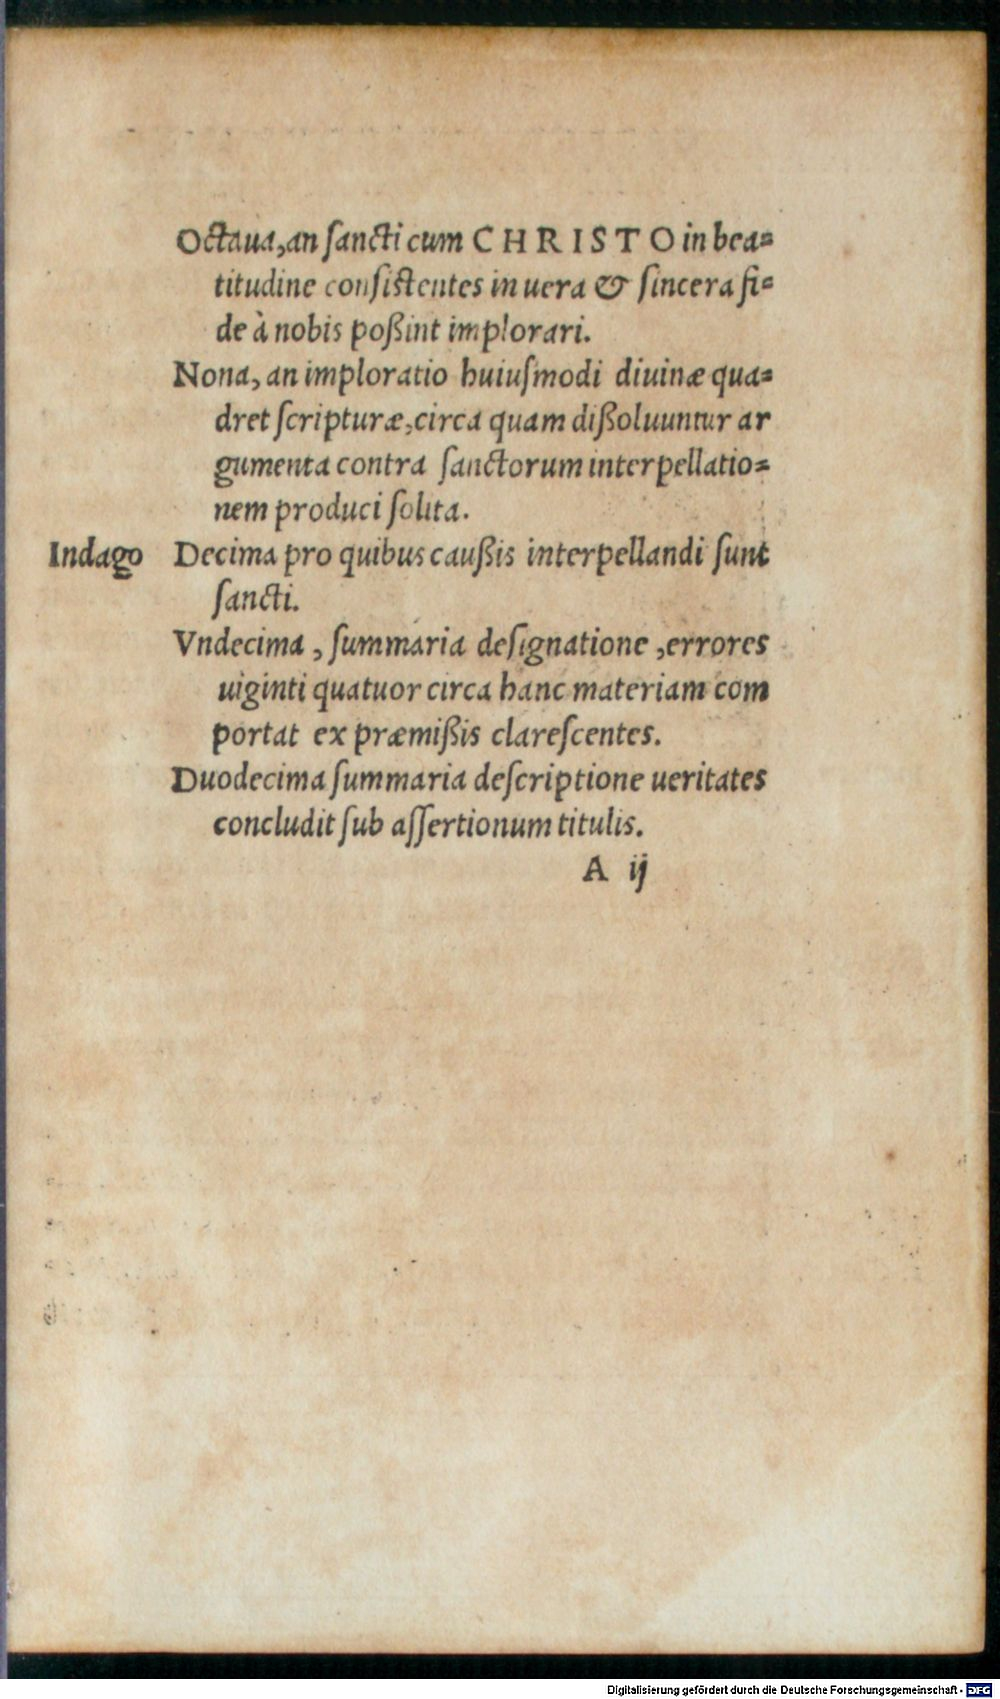 Octaua, an sancti cum CHRISTO in bea=
titudine consistentes in uera & sincera fi=
de à nobis poßint implorari.
Nona, an imploratio huiusmodi diuinæ qua=
dret scripturæ, circa quam dißoluuntur ar
gumenta contra sanctorum interpellatio=
nem produci solita.
Indago Decima pro quibus caußis interpellandi sunt
sancti.
Vndecima, summaria designatione, errores
uiginti quatuor circa hanc materiam com
portat ex præmißis clarescentes.
Duodecima summaria descriptione ueritates
concludit sub assertionum titulis.
A ij
Digitalisierung gefördert durch die Deutsche Forschungsgemeinschaft - DFG